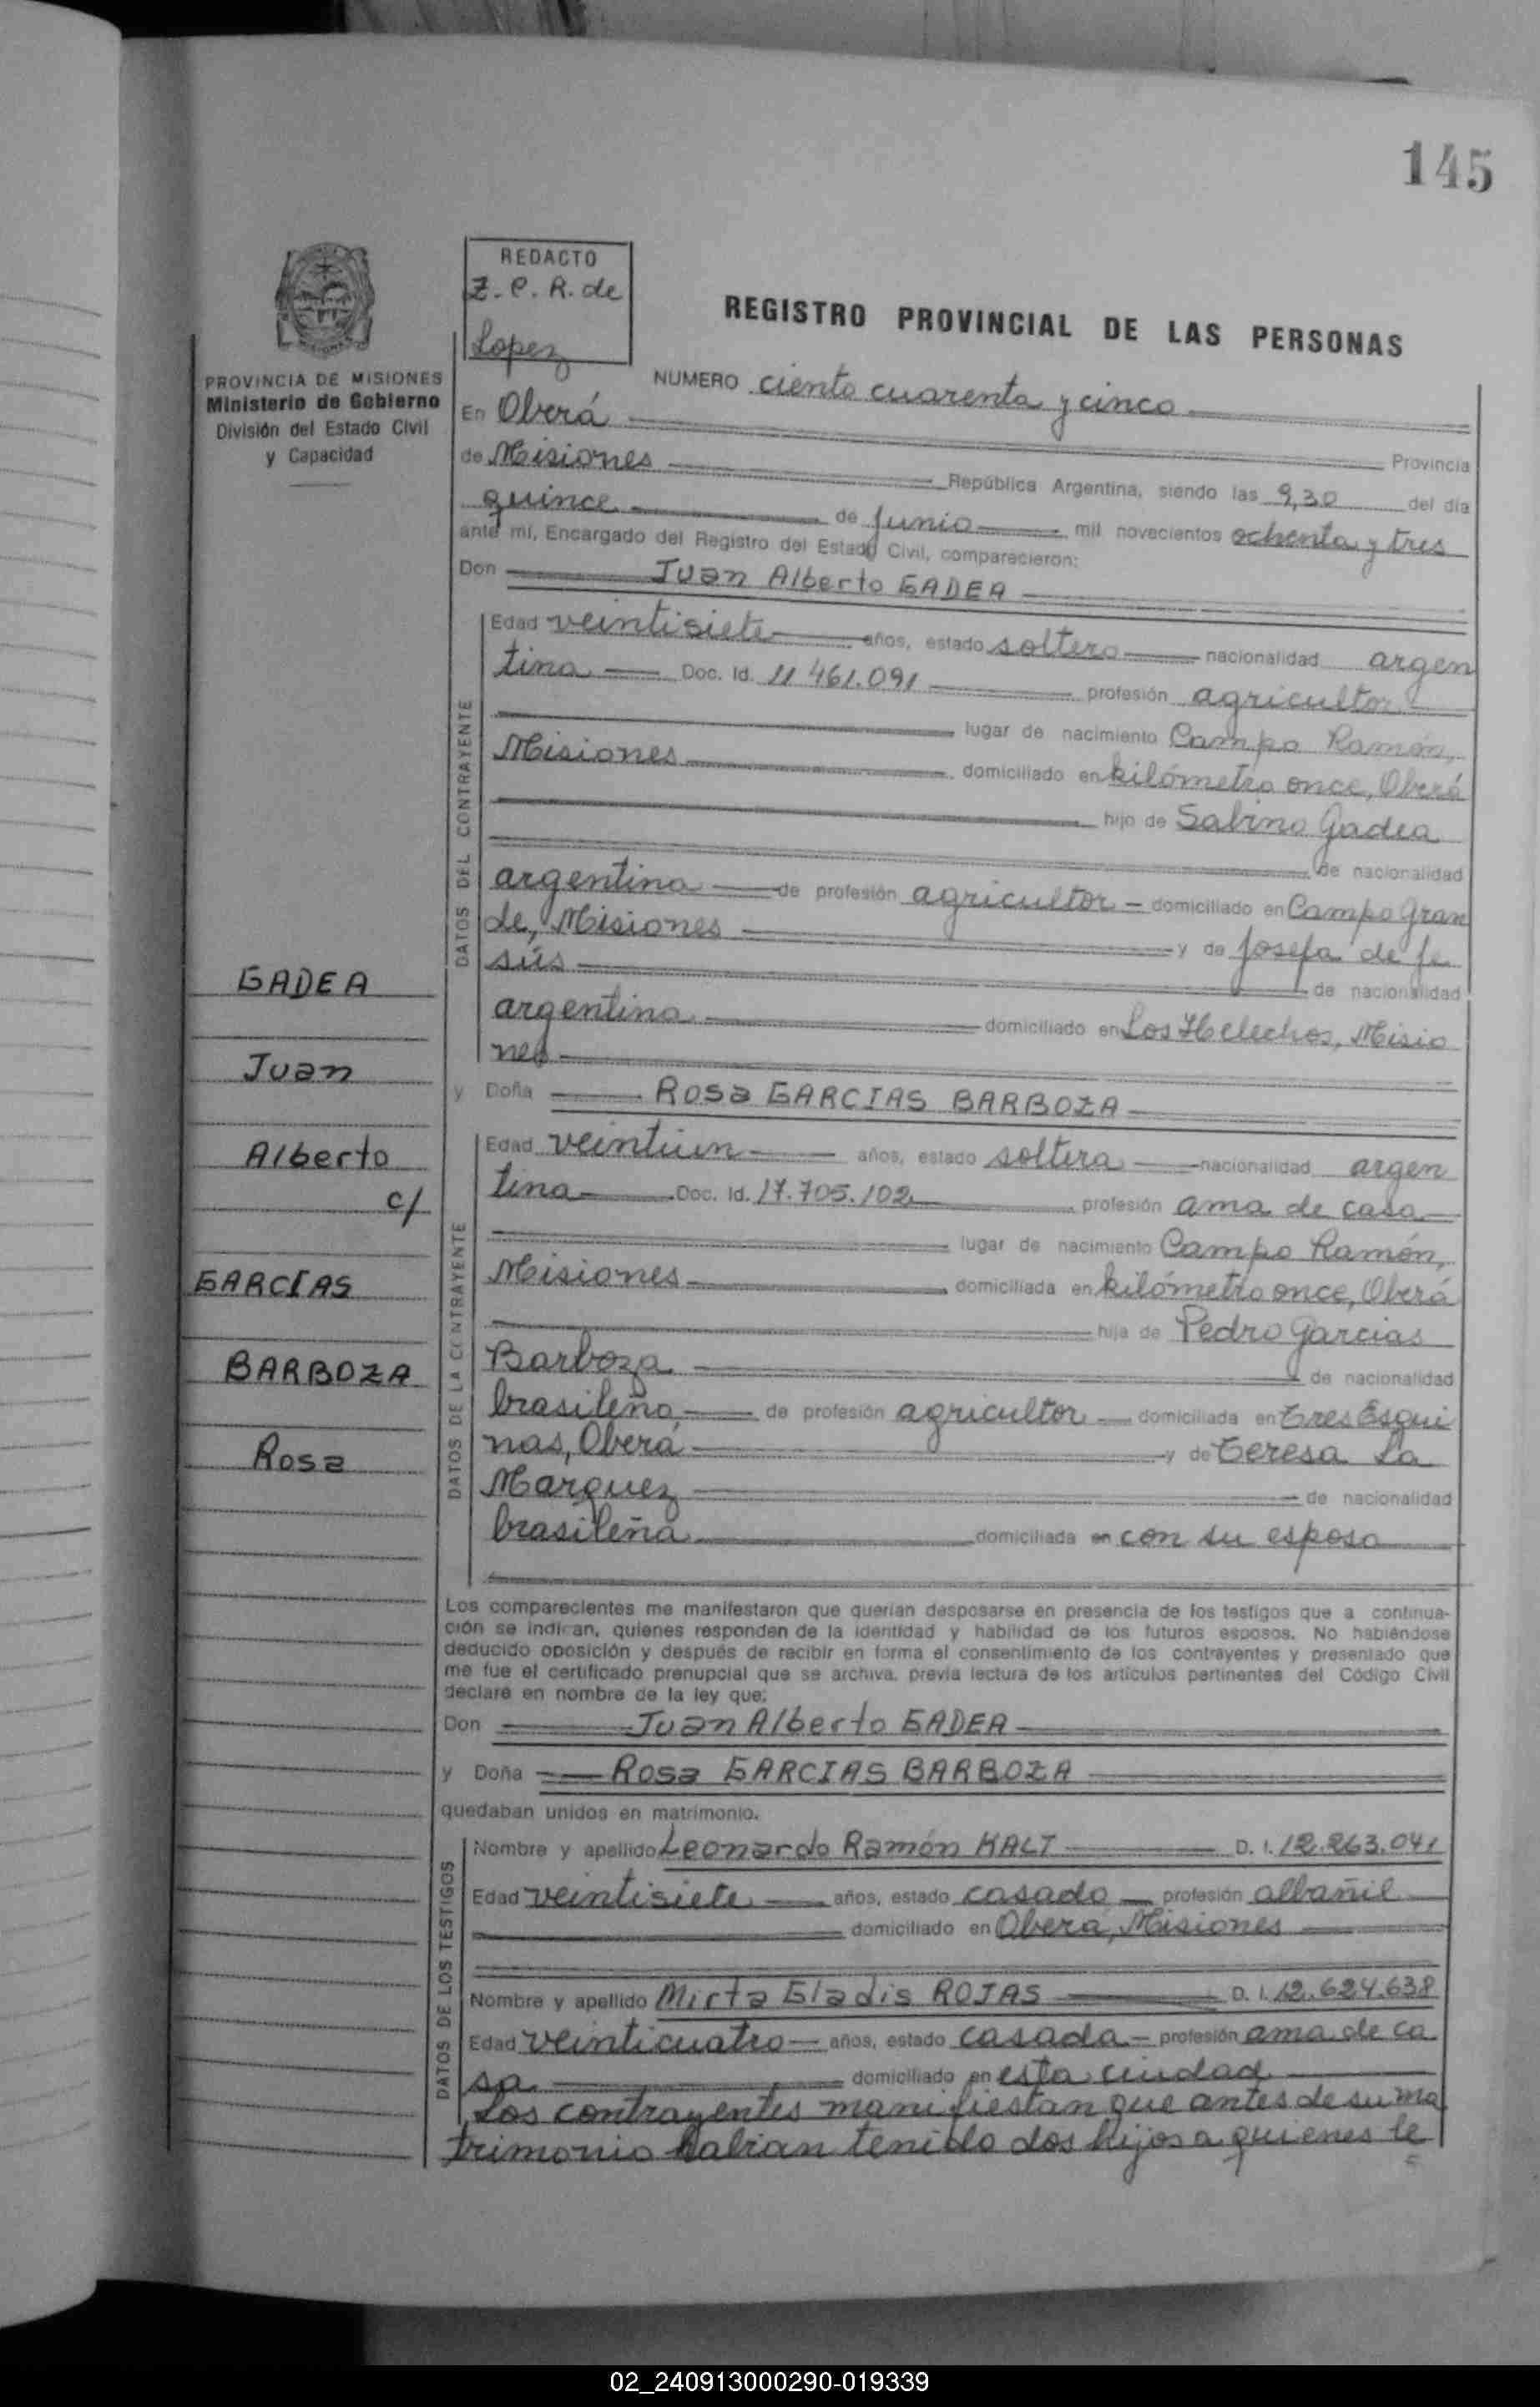 145
REDACTO
Z. C. R. de
Lopez
REGISTRO PROVINCIAL DE LAS PERSONAS
PROVINCIA DE MISIONES
Ministerio de Gobierno
División del Estado Civil
y Capacidad
NUMERO ciento cuarenta y cinco
En Oberá Provincia
de Misiones República Argentina, siendo las 9,30 del día
quince de Junio mil novecientos ochenta y tres
ante mí, Encargado del Registro del Estado Civil, comparecieron:
Don Juan Alberto GADEA
DATOS DEL CONTRAYENTE
Edad veintisiete años, estado soltero nacionalidad argen
tina Doc. Id. 11 461.091 profesión agricultor
lugar de nacimiento Campo Ramón,
Misiones domiciliado en kilómetro once, Oberá
hijo de Sabino Gadea
de nacionalidad
argentina de profesión agricultor domiciliado en Campo Gran
de, Misiones y de Josefa de Je
sús de nacionalidad
argentina domiciliado en Los Helechos, Misio
nes
y Doña Rosa GARCIAS BARBOZA
DATOS DE LA CONTRAYENTE
Edad veintiún años, estado soltera nacionalidad argen
tina Doc. Id. 17.705.102 profesión ama de casa
lugar de nacimiento Campo Ramón,
Misiones domiciliada en kilómetro once, Oberá
hija de Pedro Garcias
Barboza de nacionalidad
brasileña de profesión agricultor domiciliada en Tres Esqui
nas, Oberá y de Teresa La
Marquez de nacionalidad
brasileña domiciliada en con su esposo
GADEA
Juan
Alberto
c/
GARCÍAS
BARBOZA
Rosa
Los comparecientes me manifestaron que querían desposarse en presencia de los testigos que a continua-
ción se indican, quienes responden de la identidad y habilidad de los futuros esposos. No habiéndose
deducido oposición y después de recibir en forma el consentimiento de los contrayentes y presentado que
me fue el certificado prenupcial que se archiva, previa lectura de los artículos pertinentes del Código Civil
declaré en nombre de la ley que:
Don Juan Alberto GADEA
y Doña Rosa GARCIAS BARBOZA
quedaban unidos en matrimonio.
DATOS DE LOS TESTIGOS
Nombre y apellido Leonardo Ramón KALT D. I. 12.263.041
Edad veintisiete años, estado casado profesión albañil
domiciliado en Oberá, Misiones
Nombre y apellido Mirta Gladis ROJAS D. I. 12.624.638
Edad veinticuatro años, estado casada profesión ama de ca
sa domiciliado en esta ciudad
Los contrayentes manifiestan que antes de su ma
trimonio habian tenido dos hijos a quienes le
02_240913000290-019339